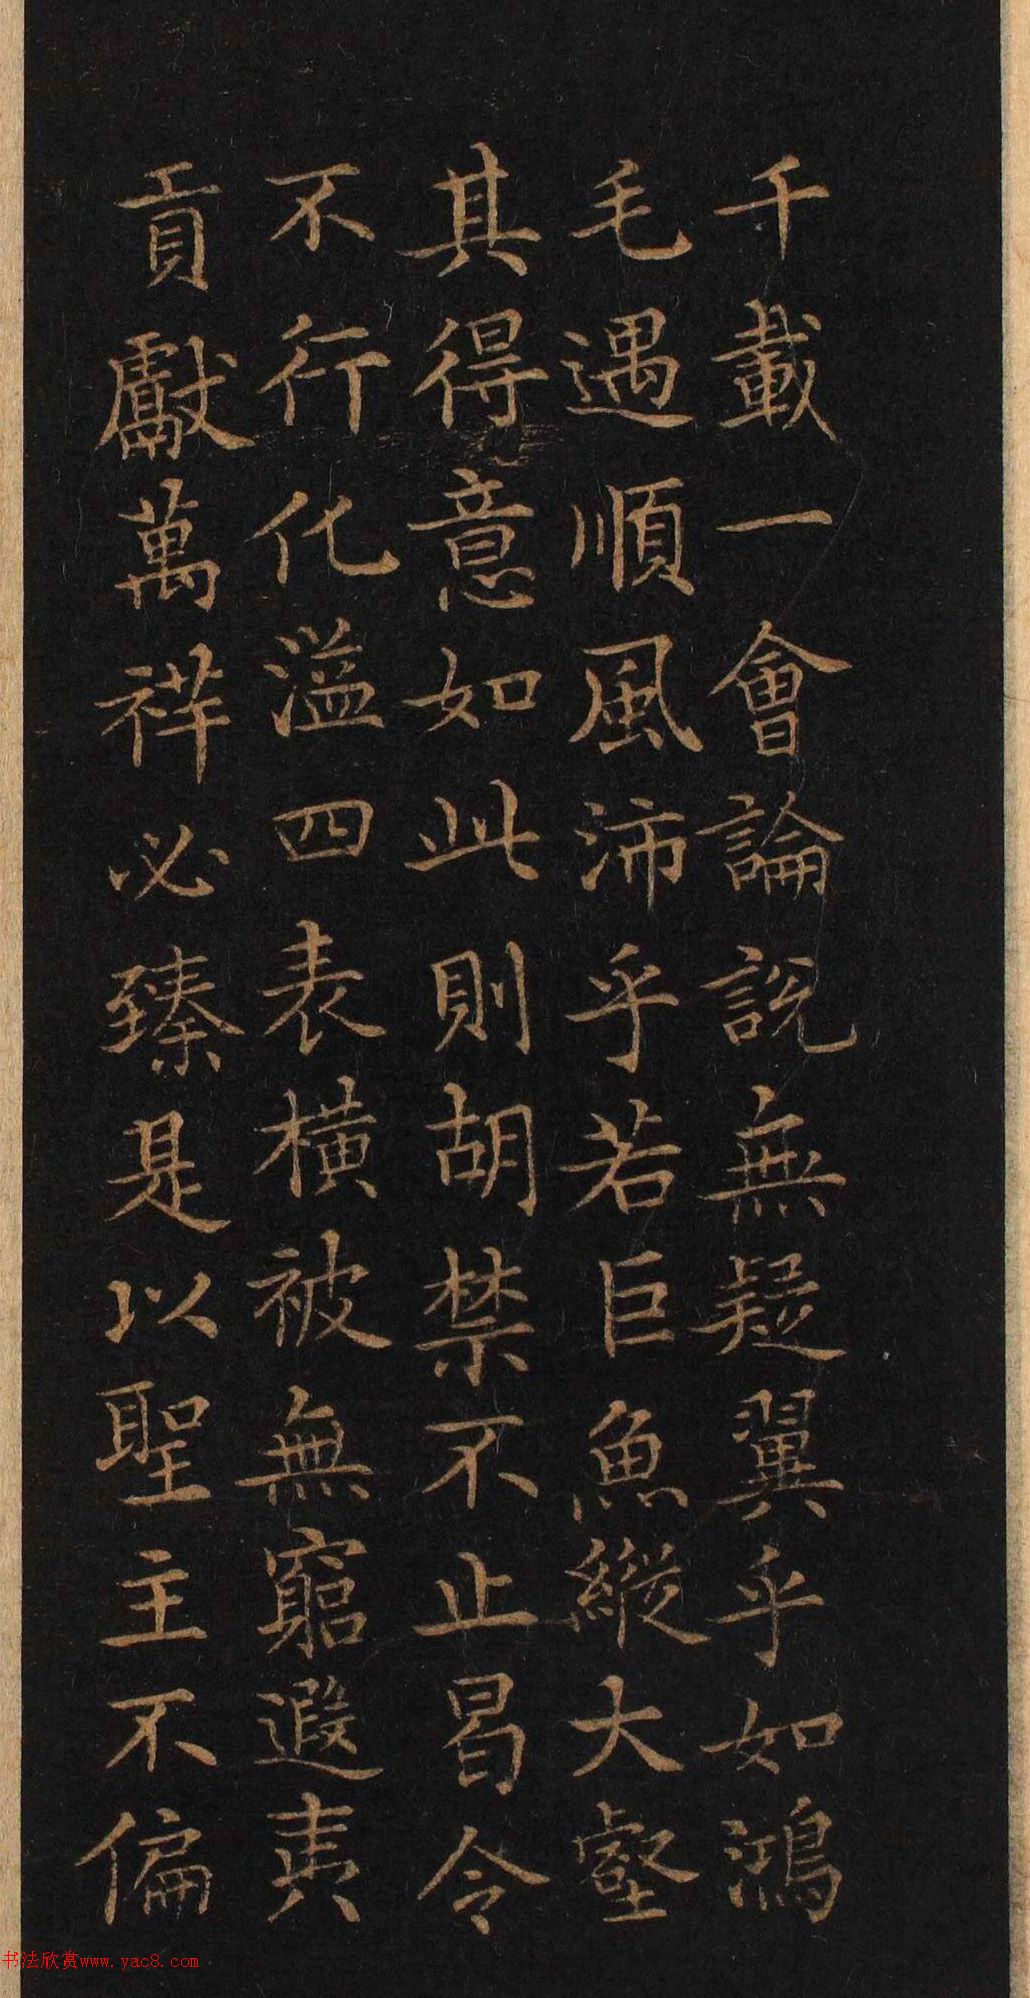 千載一會論說無疑翼乎如鴻
毛遇順風沛乎若巨魚縱大壑
其得意如此則胡禁不止曷令
不行化溢四表橫被無窮遐夷
貢獻萬祥必臻是以聖主不偏
书法欣赏www.yac8.com